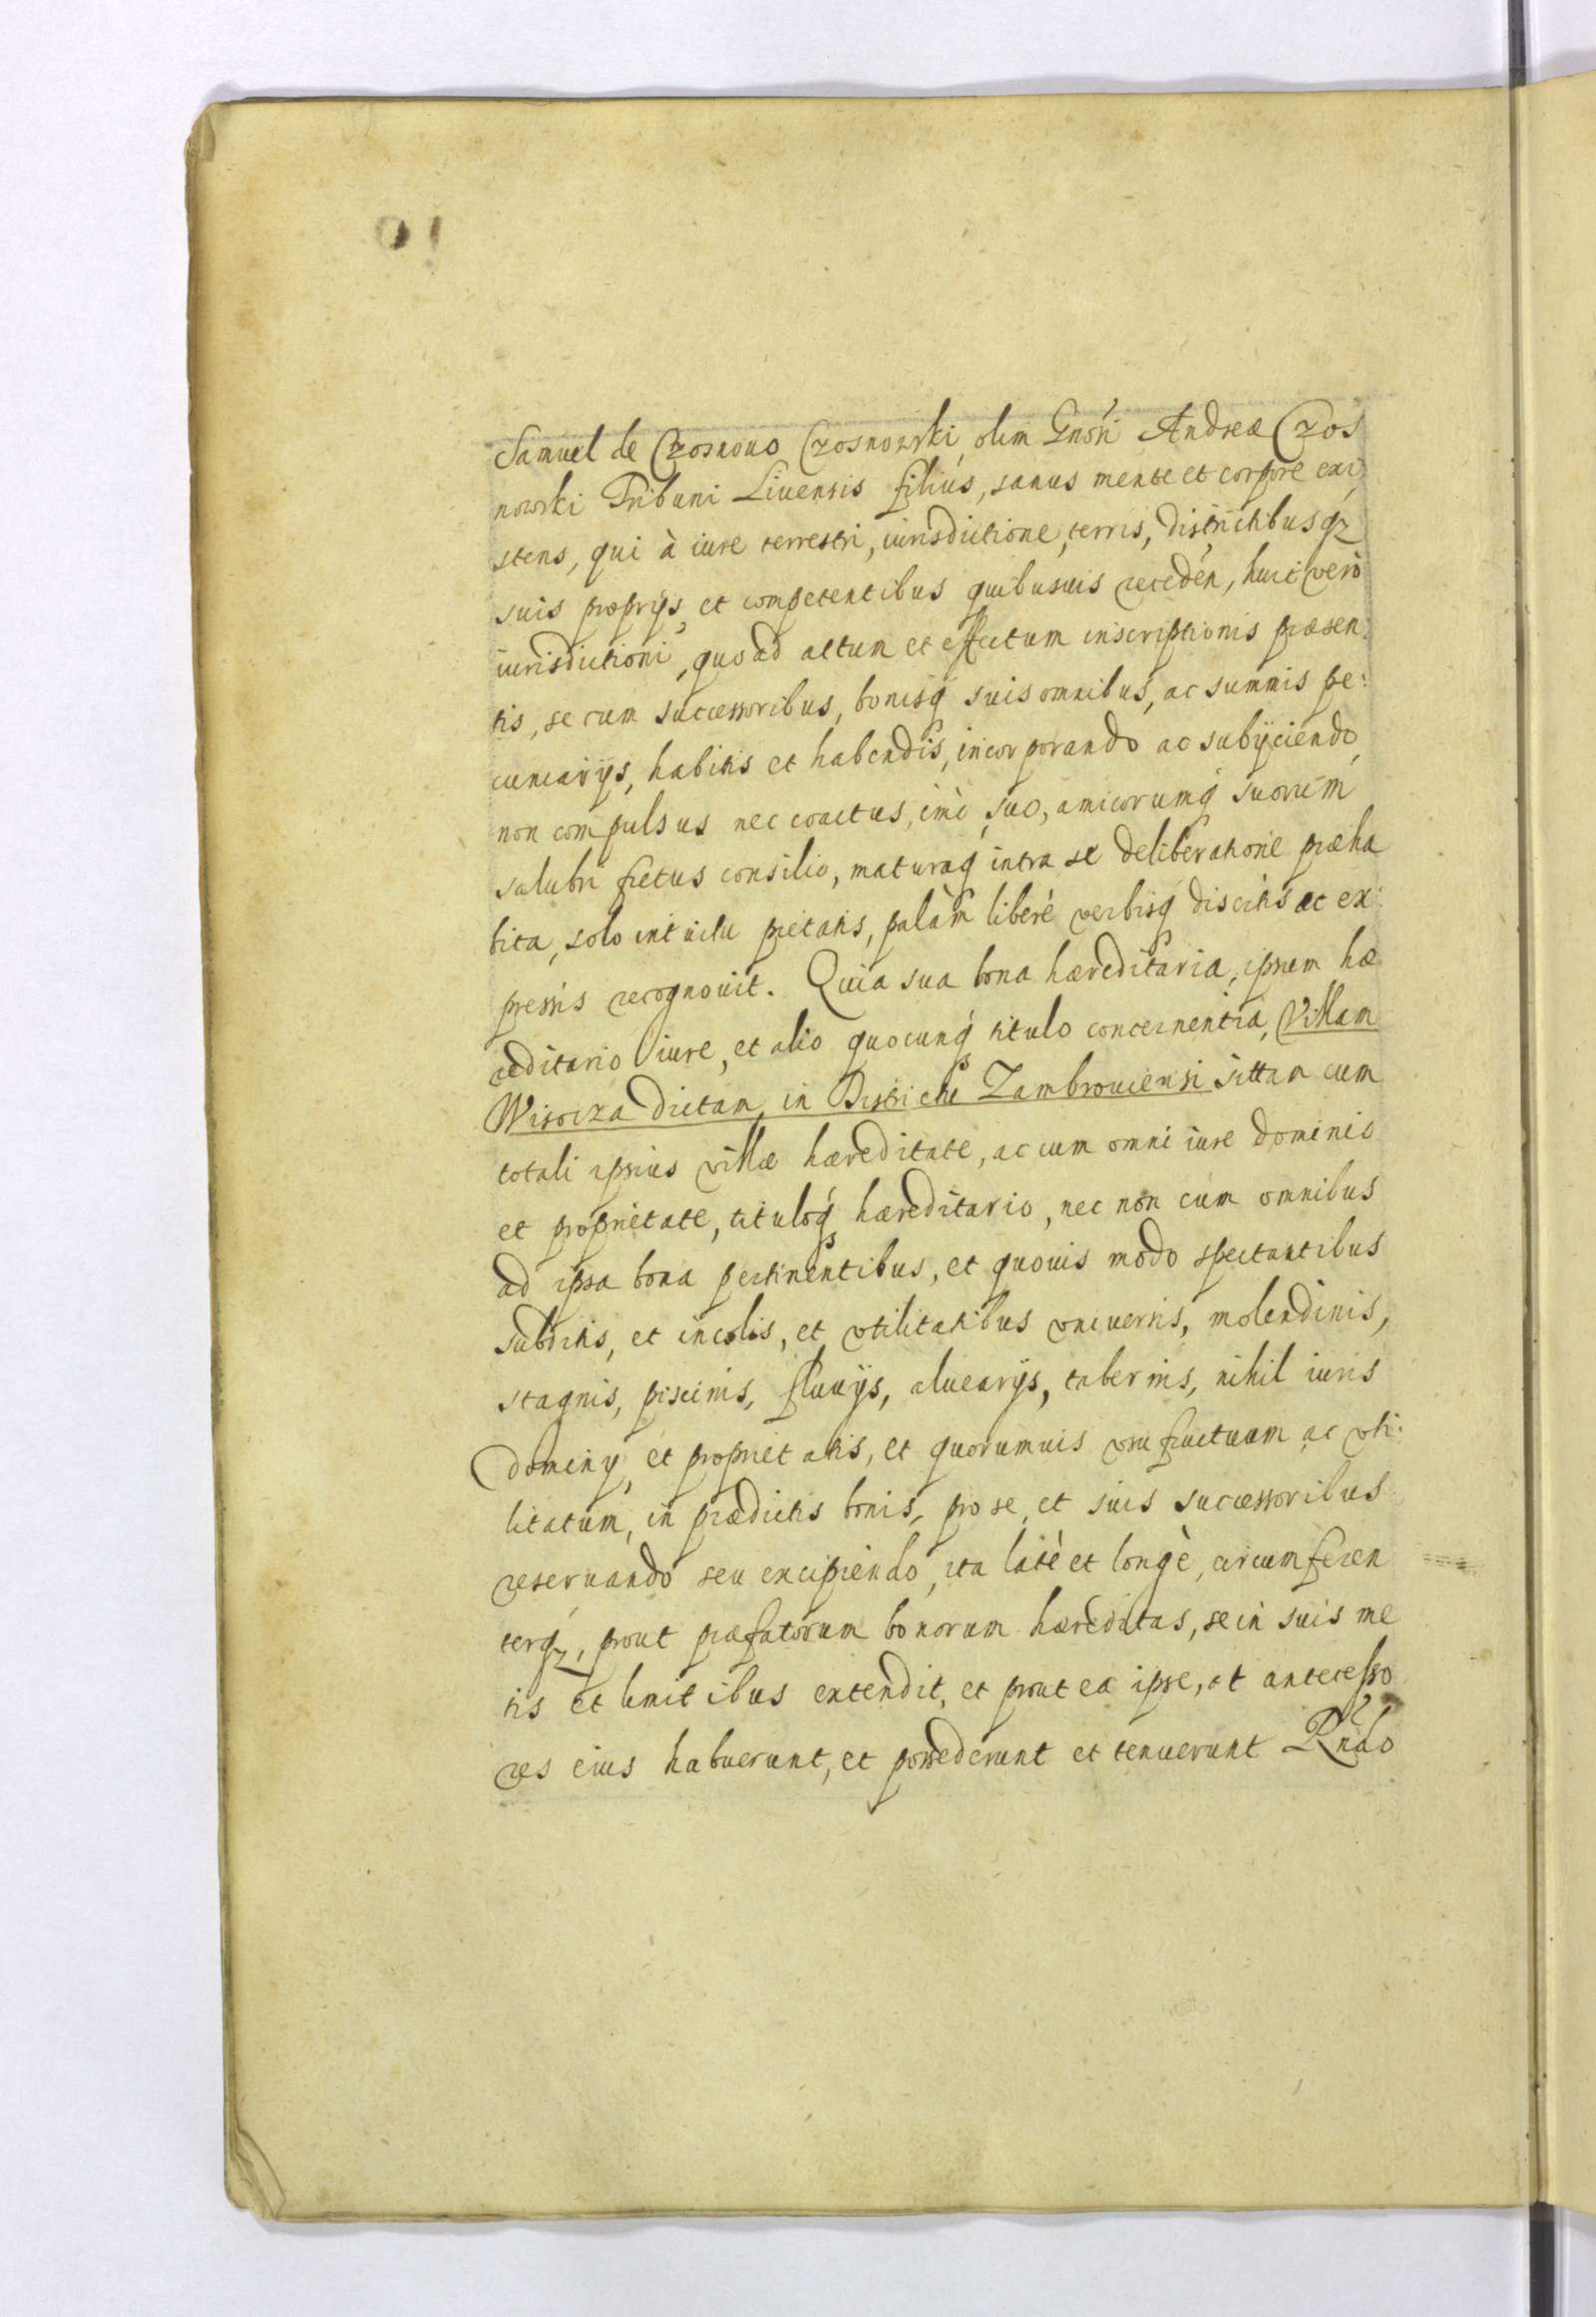 Samuel de Czosnowo Czosnowski, olim Gnôri Andreæ Czos
nowski Tribuni Liuensis filius, sanus mente et corpore exi
stens, qui à iure terrestri, iurisdictione, terris, districtibusq3
suis proprijs, et competentibus quibusuis receden, huic verò
iurisdictioni, quo ad actum et effectum inscriptionis præsen:
tis, se cum successoribus, bonisq́ suis omnibus, ac summis pe:
cuniarijs, habitis et habendis, incorporando ac subijciendo,
non compulsus nec coactus, imò suo, amicorumq́ suorum
salubri fretus consilio, maturaq́ intra se deliberatione præha
bita, solo intuitu pietatis, palàm liberè verbisq́ discretis ac ex:
pressis recognouit. Quia sua bona hæreditaria, ipsum hæ
reditario iure, et alio quocunq́ titulo concernentia, Villam
Wisocza dictam, in Districtu Zambrouiensi sittam cum
totali ipsius villæ hæreditate, ac cum omni iure dominio
et proprietate, tituloq́ hæreditario, nec non cum omnibus
ad ipsa bona pertinentibus, et quouis modo spectantibus
subditis, et incolis, et vtilitatibus vniuersis, molendinis,
stagnis, piscinis, fluuijs, aluearijs, tabernis, nihil iuris
dominij, et proprietatis, et quorumuis vsufructuum ac vti:
litatum, in prædictis bonis, pro se, et suis successoribus
reseruando seu excipiendo, ita latè et longè, circumferen
terq3, prout præfatorum bonorum hæreditas, se in suis me
tis et limitibus extendit, et prout ea ipse, et antecesso
res eius habuerunt, et possederunt et tenuerunt Rndo